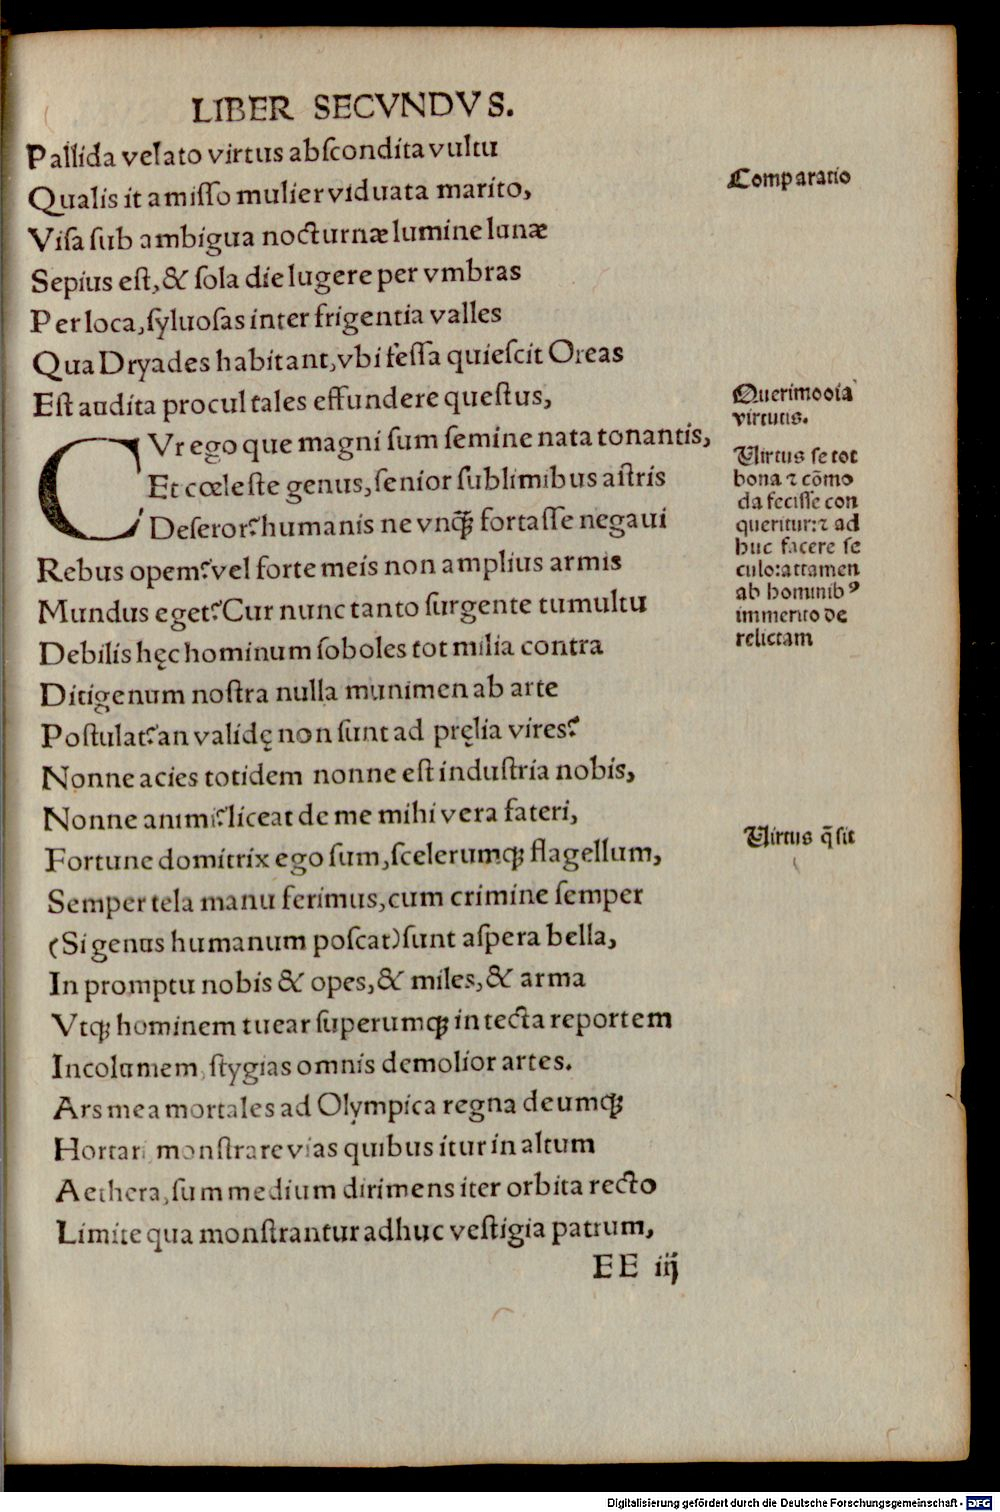 LIBER SECVNDVS.
Pallida velato virtus abſcondita vultu
Qualis it amiſſo mulier viduata marito,
Comparatio
Viſa ſub ambigua nocturnæ lumine lunæ
Sepius eſt, & ſola die lugere per vmbras
Per loca, ſyluoſas inter frigentia valles
Qua Dryades habitant, vbi feſſa quieſcit Oreas
Eſt audita procul tales effundere queſtus,
Querimoοia
virtutis.
CVr ego que magni ſum ſemine nata tonantis,
Et cœleſte genus, ſenior ſublimibus aſtris
Deſeror? humanis ne vnq̃ꝫ fortaſſe negaui
Rebus opem? vel forte meis non amplius armis
Mundus eget? Cur nunc tanto ſurgente tumultu
Virtus ſe tot
bona ⁊ cõmo
da feciſſe con
queritur: ⁊ ad
huc facere ſe
culo: attamen
ab hominibꝰ
immerito de
relictam
Debilis hęc hominum ſoboles tot milia contra
Ditigenum noſtra nulla munimen ab arte
Poſtulat? an validę non ſunt ad pręlia vires?
Nonne acies totidem nonne eſt induſtria nobis,
Nonne animi? liceat de me mihi vera fateri,
Virtus q̃ ſit
Fortune domitrix ego ſum, ſcelerumqꝫ flagellum,
Semper tela manu ferimus, cum crimine ſemper
(Si genus humanum poſcat) ſunt aſpera bella,
In promptu nobis & opes, & miles, & arma
Vtqꝫ hominem tuear ſuperumqꝫ in tecta reportem
Incolumem, ſtygias omnis demolior artes.
Ars mea mortales ad Olympica regna deumqꝫ
Hortari monſtrare vias quibus itur in altum
Aethera, ſum medium dirimens iter orbita recto
Limite qua monſtrantur adhuc veſtigia patrum,
EE iij
Digitalisierung gefördert durch die Deutsche Forschungsgemeinschaft - DFG